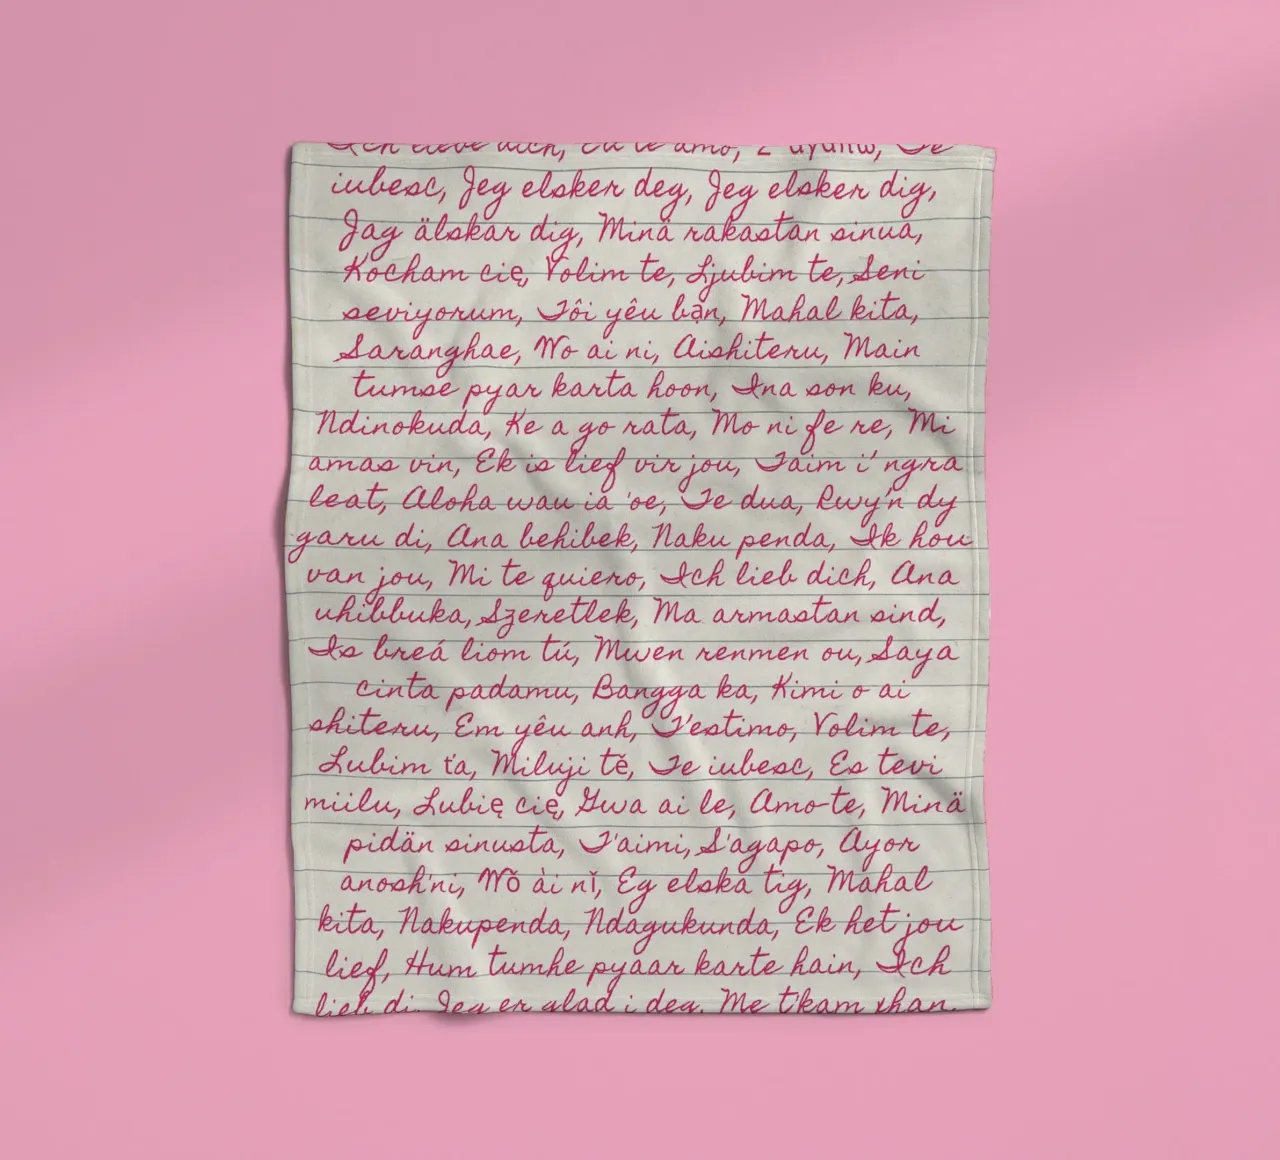 Ich liebe dich, Eu te amo, Σ'αγαπώ, Te
iubesc, Jeg elsker deg, Jeg elsker dig,
Jag älskar dig, Minä rakastan sinua,
Kocham cię, Volim te, Ljubim te, Seni
seviyorum, Tôi yêu bạn, Mahal kita,
Saranghae, Wo ai ni, Aishiteru, Main
tumse pyar karta hoon, Ina son ku,
Ndinokuda, Ke a go rata, Mo ni fe re, Mi
amas vin, Ek is lief vir jou, Taim i' ngra
leat, Aloha wau ia 'oe, Te dua, Rwy'n dy
garu di, Ana behibek, Naku penda, Ik hou
van jou, Mi te quiero, Ich lieb dich, Ana
uhibbuka, Szeretlek, Ma armastan sind,
Is breá liom tú, Mwen renmen ou, Saya
cinta padamu, Bangga ka, Kimi o ai
shiteru, Em yêu anh, T'estimo, Volim te,
Lubim ťa, Miluji tě, Te iubesc, Es tevi
miilu, Lubię cię, Gwa ai le, Amo-te, Minä
pidän sinusta, T'aimi, S'agapo, Ayor
anosh'ni, Wǒ ài nǐ, Eg elska tig, Mahal
kita, Nakupenda, Ndagukunda, Ek het jou
lief, Hum tumhe pyaar karte hain, Ich
lieb di, Jeg er glad i deg, Me tkam xhan,